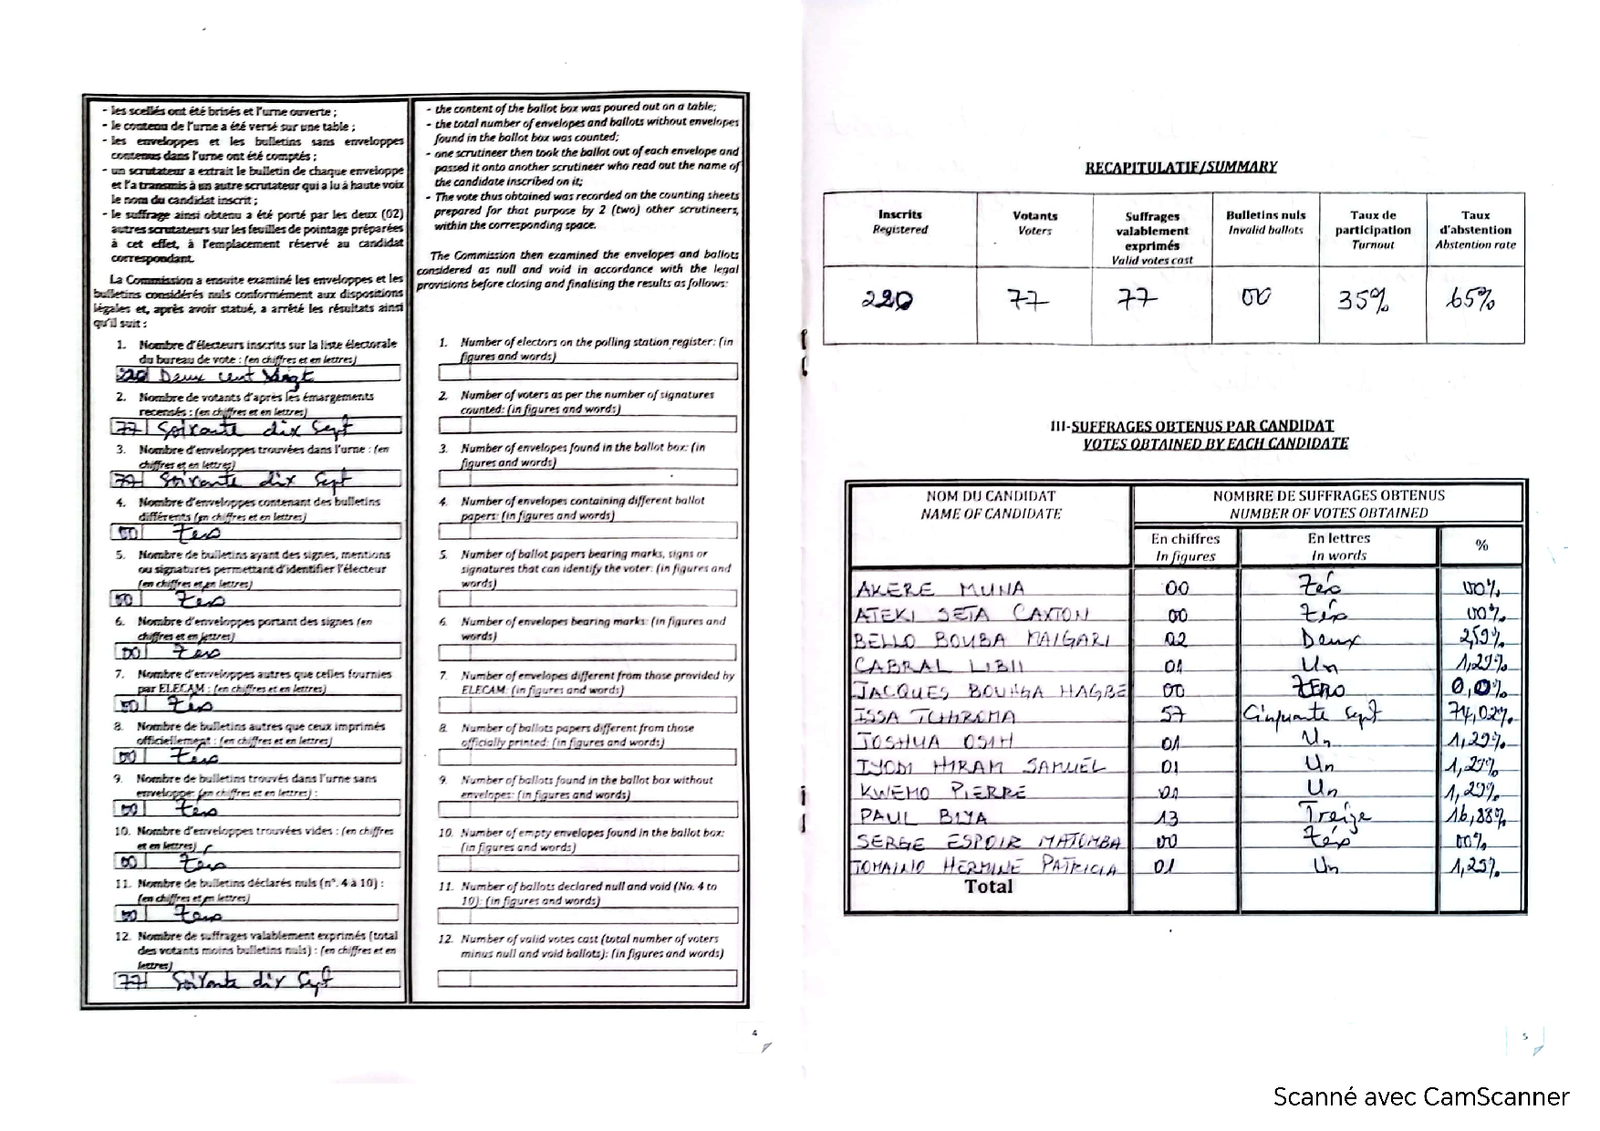 - les scellés ont été brisés et l'urne ouverte ;
- le contenu de l'urne a été versé sur une table ;
- les enveloppes et les bulletins sans enveloppes
contenus dans l'urne ont été comptés ;
- un scrutateur a extrait le bulletin de chaque enveloppe
et l'a transmis à un autre scrutateur qui a lu à haute voix
le nom du candidat inscrit ;
- le suffrage ainsi obtenu a été porté par les deux (02)
autres scrutateurs sur les feuilles de pointage préparées
à cet effet, à l'emplacement réservé au candidat
correspondant.
La Commission a ensuite examiné les enveloppes et les
bulletins considérés nuls conformément aux dispositions
légales et, après avoir statué, a arrêté les résultats ainsi
qu'il suit :
1. Nombre d'électeurs inscrits sur la liste électorale
du bureau de vote : (en chiffres et en lettres)
220 Deux cent vingt
2. Nombre de votants d'après les émargements
recensés : (en chiffres et en lettres)
77 Soixante dix Sept
3. Nombre d'enveloppes trouvées dans l'urne : (en
chiffres et en lettres)
77 Soixante dix Sept
4. Nombre d'enveloppes contenant des bulletins
différents (en chiffres et en lettres)
00 Zéro
5. Nombre de bulletins ayant des signes, mentions
ou signatures permettant d'identifier l'électeur
(en chiffres et en lettres)
00 Zéro
6. Nombre d'enveloppes portant des signes (en
chiffres et en lettres)
00 Zéro
7. Nombre d'enveloppes autres que celles fournies
par ELECAM : (en chiffres et en lettres)
00 Zéro
8. Nombre de bulletins autres que ceux imprimés
officiellement : (en chiffres et en lettres)
00 Zéro
9. Nombre de bulletins trouvés dans l'urne sans
enveloppe: (en chiffres et en lettres) :
00 Zéro
10. Nombre d'enveloppes trouvées vides : (en chiffres
et en lettres)
00 Zéro
11. Nombre de bulletins déclarés nuls (n°. 4 à 10) :
(en chiffres et en lettres)
00 Zéro
12. Nombre de suffrages valablement exprimés (total
des votants moins bulletins nuls) : (en chiffres et en
lettres)
77 Soixante dix Sept
- the content of the ballot box was poured out on a table;
- the total number of envelopes and ballots without envelopes
found in the ballot box was counted;
- one scrutineer then took the ballot out of each envelope and
passed it onto another scrutineer who read out the name of
the candidate inscribed on it;
- The vote thus obtained was recorded on the counting sheets
prepared for that purpose by 2 (two) other scrutineers,
within the corresponding space.
The Commission then examined the envelopes and ballots
considered as null and void in accordance with the legal
provisions before closing and finalising the results as follows:
1. Number of electors on the polling station register: (in
figures and words)
2. Number of voters as per the number of signatures
counted: (in figures and words)
3. Number of envelopes found in the ballot box: (in
figures and words)
4. Number of envelopes containing different ballot
papers: (in figures and words)
5. Number of ballot papers bearing marks, signs or
signatures that can identify the voter: (in figures and
words)
6. Number of envelopes bearing marks: (in figures and
words)
7. Number of envelopes different from those provided by
ELECAM: (in figures and words)
8. Number of ballots papers different from those
officially printed: (in figures and words)
9. Number of ballots found in the ballot box without
envelopes: (in figures and words)
10. Number of empty envelopes found in the ballot box:
(in figures and words)
11. Number of ballots declared null and void (No. 4 to
10): (in figures and words)
12. Number of valid votes cast (total number of voters
minus null and void ballots): (in figures and words)
4
RECAPITULATIF/SUMMARY
Inscrits Votants Suffrages Bulletins nuls Taux de Taux
Registered Voters valablement Invalid ballots participation d'abstention
exprimés Turnout Abstention rate
Valid votes cast
220 77 77 00 35% 65%
III-SUFFRAGES OBTENUS PAR CANDIDAT
VOTES OBTAINED BY EACH CANDIDATE
NOM DU CANDIDAT NOMBRE DE SUFFRAGES OBTENUS
NAME OF CANDIDATE NUMBER OF VOTES OBTAINED
En chiffres En lettres %
In figures In words
AKERE MUNA 00 Zéro 00%
ATEKI SETA CAXTON 00 Zéro 00%
BELLO BOUBA MAIGARI 02 Deux 2,59%
CABRAL LIBII 01 Un 1,29%
JACQUES BOUHGA HAGBE 00 ZERO 0,0%
ISSA TCHIROMA 57 Cinquante sept 74,02%
JOSHUA OSIH 01 Un 1,29%
IYOM HIRAM SAMUEL 01 Un 1,29%
KWEMO PIERRE 01 Un 1,29%
PAUL BIYA 13 Treize 16,88%
SERGE ESPOIR MATOMBA 00 Zéro 00%
TOMAINO HERMINE PATRICIA 01 Un 1,29%
Total
5
Scanné avec CamScanner